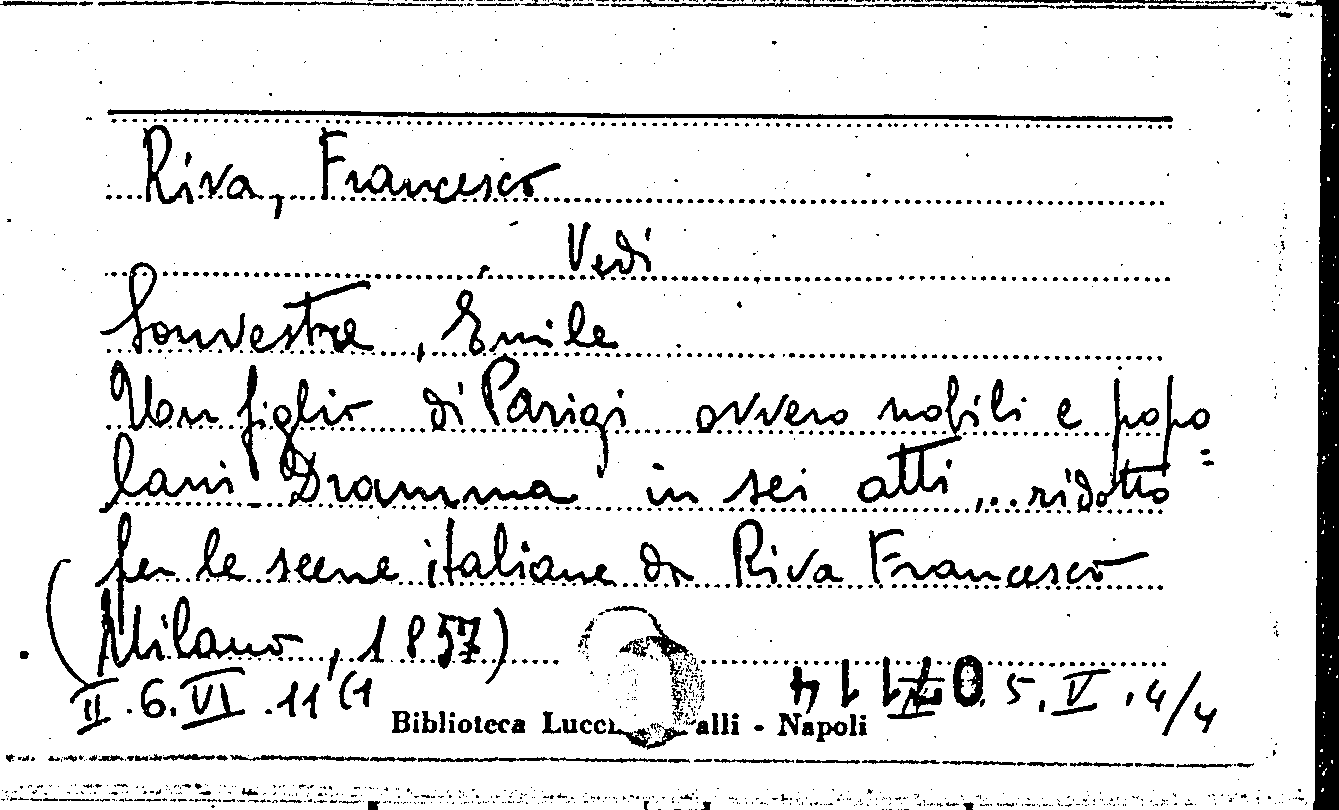 Riva, Francesco
Vedi
Souvestre, Emile
Un figlio di Parigi ovvero nobili e popo=
lani Dramma in sei atti ... ridotto
per le scene italiane da Riva Francesco
(Milano, 1857)
II.6.VI.11(1 5.V.4/4
Biblioteca Lucc alli - Napoli